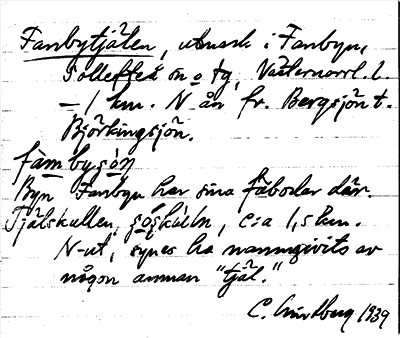 Fanbytjälen, utmark i Fanbyn,
Sollefteå sn o tg, Västernorrl. l.
– 1 km. N ån fr. Bergsjön t.
Björkingsjön.
Byn Fanbyn har sina fäbodar där.
Tjälskullen, c:a 1,5 km.
N-ut, synes ha namngivits av
någon annan "tjäl."
C. Lindberg 1939